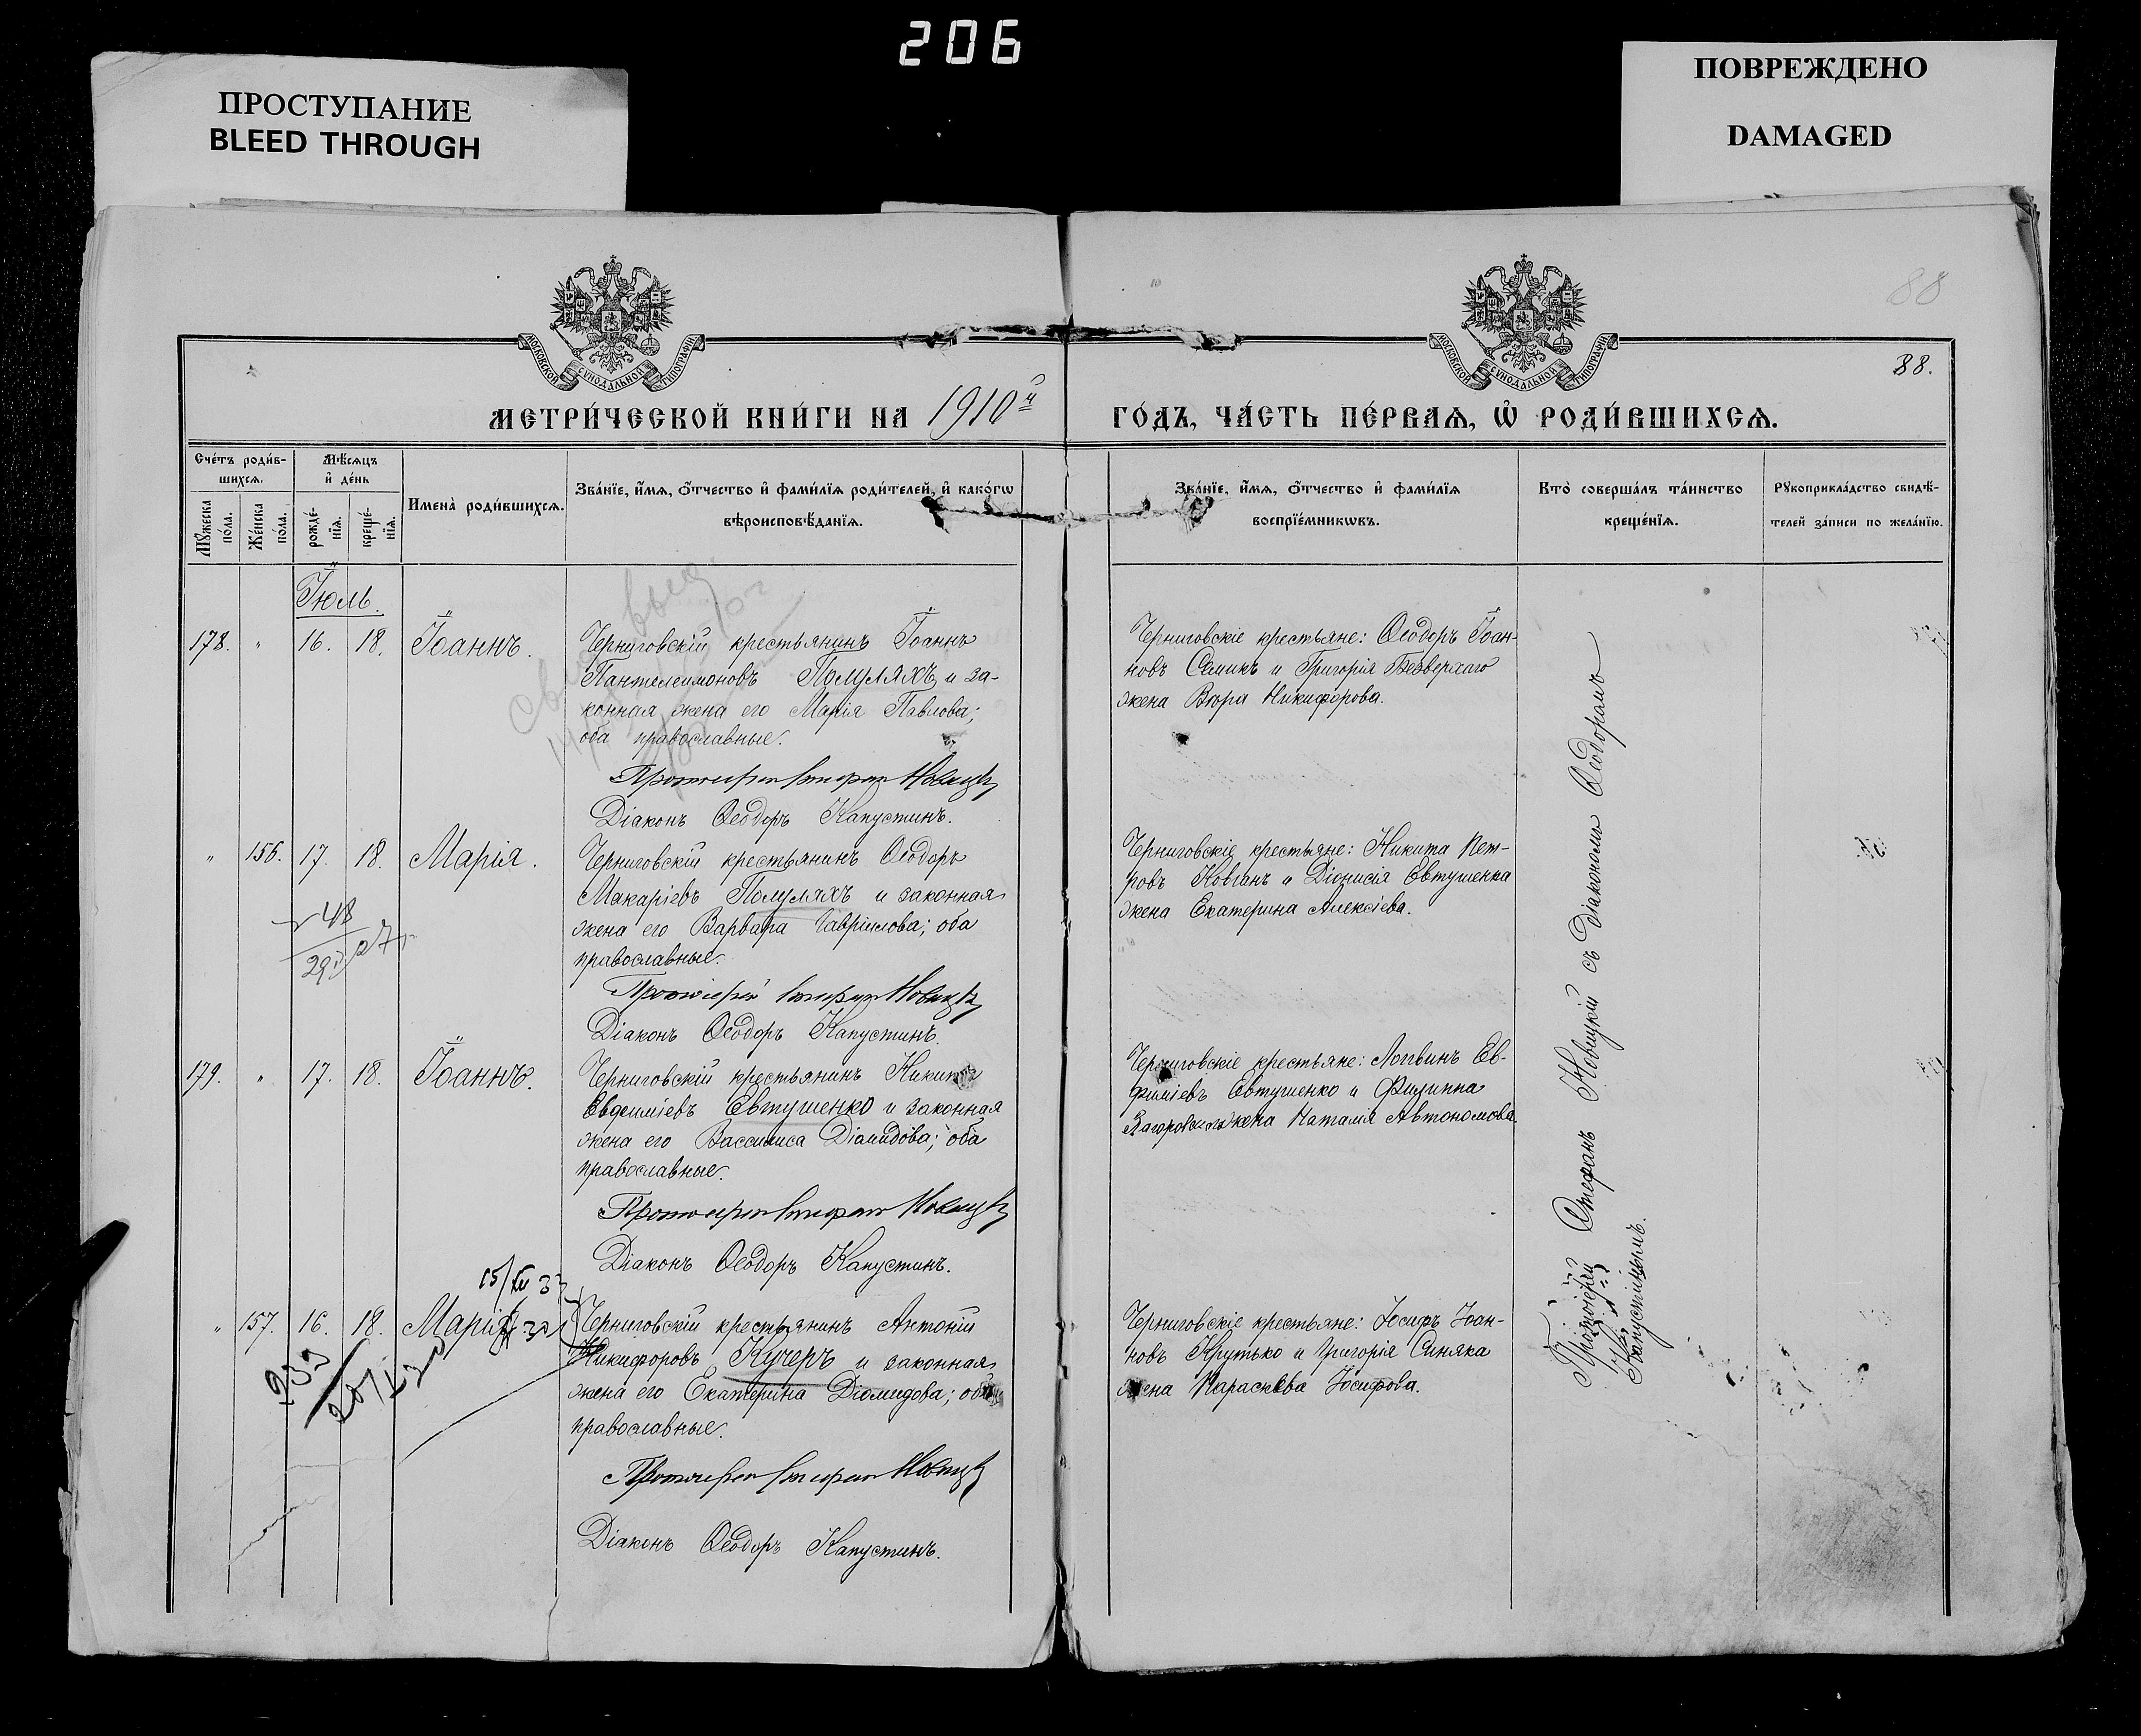 206
ПРОСТУПАНИЕ
BLEED THROUGH
ПОВРЕЖДЕНО
DAMAGED
88
88.
МОСКОВСКОЙ СѴНОДАЛЬНОЙ ТИПОГРАФІИ
МОСКОВСКОЙ СѴНОДАЛЬНОЙ ТИПОГРАФІИ
МЕТРИ́ЧЕСКОЙ КНИ́ГИ НА 1910й ГО́ДЪ, ЧА́СТЬ ПЕ́РВАѦ, Ѡ҆ РОДИ́ВШИХСѦ.
Сче́тъ роди́в-
шихсѧ.
Мꙋ́жеска по́ла.
Же́нска по́ла.
Мѣ́сѧцъ
и҆ де́нь
рожде́-
нїѧ.
креще́-
нїѧ.
Имена̀ роди́вшихсѧ.
Зва́нїе, и҆́мѧ, ѻ҆́тчество и҆ фами́лїѧ роди́телей, и҆ како́гѡ
вѣроисповѣ́данїѧ.
Зва́нїе, и҆́мѧ, ѻ҆́тчество и҆ фами́лїѧ
воспрїе́мникѡвъ.
Кто̀ соверша́лъ та́инство
креще́нїѧ.
Рꙋкоприкла́дство свидѣ́-
телей за́писи по жела́нїю.
Іюль.
178. " 16. 18. Іоаннъ.
Черниговскій крестьянинъ Іоаннъ
Пантелеимоновъ Полуляхъ и за-
конная жена его Марія Павлова;
оба православные.
Протоіерей Стефанъ Новицкій
Діаконъ Ѳеодоръ Капустинъ.
Черниговскіе крестьяне: Ѳеодоръ Іоан-
новъ Семикъ и Григорія Безверхаго
жена Вѣра Никифорова.
" 156. 17. 18. Марія.
Черниговскій крестьянинъ Ѳеодоръ
Макаріевъ Полуляхъ и законная
жена его Варвара Гавріилова; оба
православные.
Протоіерей Стефанъ Новицкій
Діаконъ Ѳеодоръ Капустинъ.
Черниговскіе крестьяне: Никита Пет-
ровъ Ковганъ и Діонисія Евтушенка
жена Екатерина Алексіева.
179. " 17. 18. Іоаннъ.
Черниговскій крестьянинъ Никита
Евфиміевъ Евтушенко и законная
жена его Вассилиса Діамидова; оба
православные.
Протоіерей Стефанъ Новицкій
Діаконъ Ѳеодоръ Капустинъ.
Черниговскіе крестьяне: Логвинъ Ев-
фиміевъ Евтушенко и Филиппа
жена Наталія Автономова.
" 157. 16. 18. Марія
Черниговскій крестьянинъ Антоній
Никифоровъ Кучеръ и законная
жена его Екатерина Діомидова; оба
православные.
Протоіерей Стефанъ Новицкій
Діаконъ Ѳеодоръ Капустинъ.
Черниговскіе крестьяне: Іосифъ Іоан-
новъ Крутько и Григорія Синяка
жена Параскева Іосифова.
Протоіерей Стефанъ Новицкій съ Діакономъ Ѳеодоромъ
Капустинымъ.